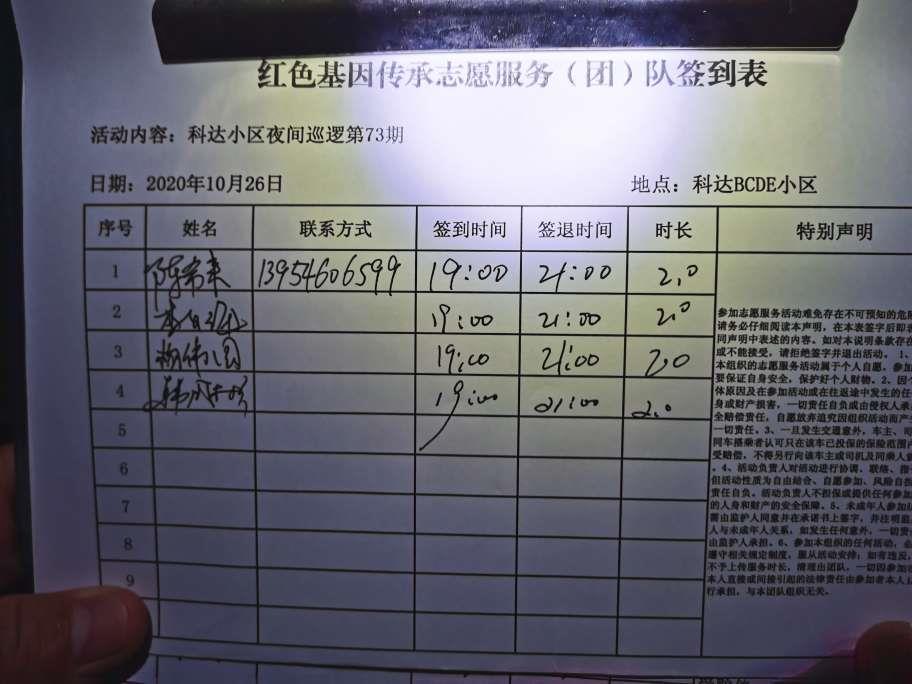 红色基因传承志愿服务（团）队签到表
活动内容：科达小区夜间巡逻第73期
日期：2020年10月26日 地点：科达BCDE小区
序号 姓名 联系方式 签到时间 签退时间 时长 特别声明
1 陈希来 13954606599 19:00 21:00 2.0
2 19:00 21:00 2.0
3 19:00 21:00 2.0
4 19:00 21:00 2.0
5
6
7
8
9
参加志愿服务活动难免存在不可预知的危
请务必仔细阅读本声明，在本表签字后即
同声明中表述的内容。如对本说明条款存
或不能接受，请拒绝签字并退出活动。 1、
本组织的志愿服务活动属于个人自愿，参加
要保证自身安全，保护好个人财物。2、因
体原因及在参加活动或在往返途中发生的任
身或财产损害，一切责任自负或由侵权人承
全赔偿责任，自愿放弃追究因组织活动而产
一切责任。3、一旦发生交通意外，车主、司
同车搭乘者认可只在该车已投保的保险范围
受赔偿，不得另行向该车主或司机及同乘人
。4、活动负责人对活动进行协调、联络、指
但活动性质为自由结合、自愿参加、风险自
责任自负。活动负责人不担保或提供任何参加
的人身和财产的安全保障。5、未成年人参加
需由监护人同意并在承诺书上签字，并注明监
人与未成年人关系，如发生任何意外，一切责
由监护人承担。6、参加本组织的任何活动，必
遵守相关规定制度，服从活动安排；如有违反，
不予上传服务时长，清理出团队，一切因参加
本人直接或间接引起的法律责任由参加者本人
行承担，与本团队组织无关。